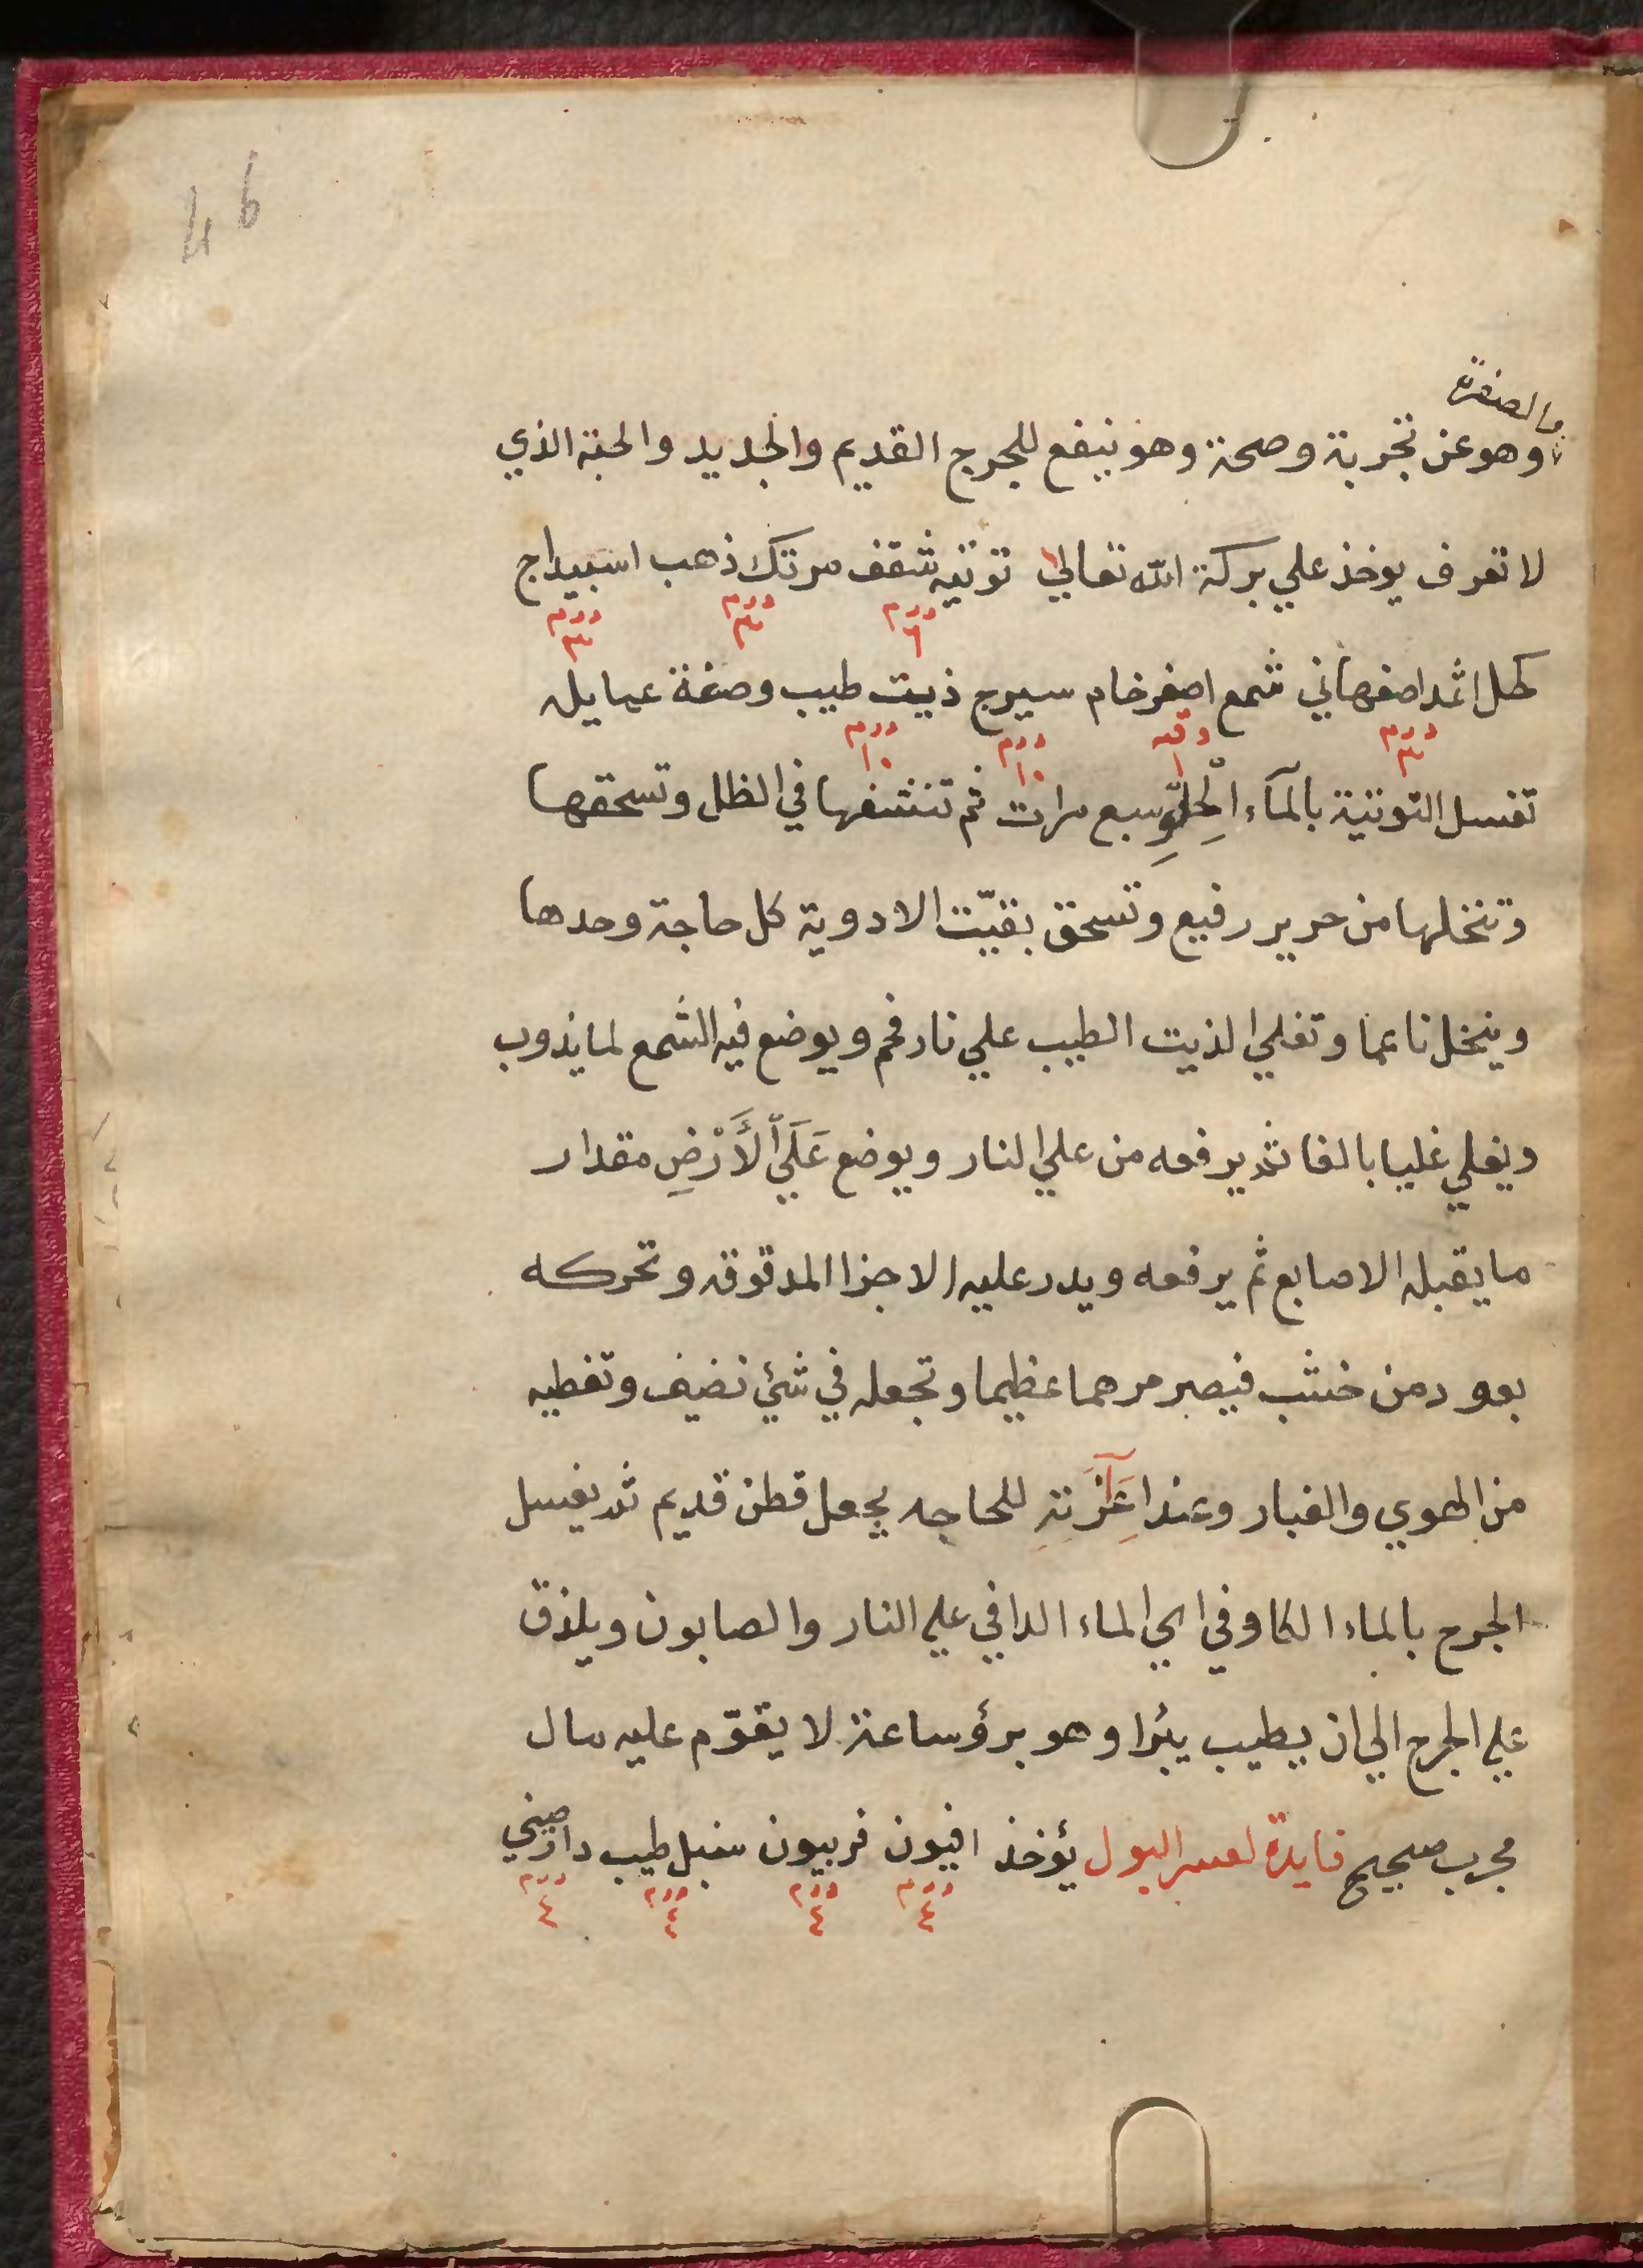 46
والصفرة
وهو عن تجربة وصحة وهو ينفع للجرح القديم والجديد والحبة الذي
لا تعرف يوخذ علي بركة الله تعالي توتيه شقف مرتك ذهب اسبيداج
درم ٦ درم ٣ درم ٣
كحل اثمد اصفهاني شمع اصفر خام سيرج ذيت طيب وصفة عمايله
درم ٣ وقيه ١ درم ١٠ درم ١٠
تغسل التوتية بالمآء الحِلّوِ سبع مرات ثم تنشفها في الظل وتسحقها
وتنخلها من حرير رفيع وتسحق بقيّت الادوية كل حاجة وحدها
وينخل ناعما وتغلي الذيت الطيب علي نار فحم ويوضع فيه الشمع لما يذوب
ويغلي غليا بالغا ثم يرفعه من علي النار ويوضع عَلَي الأَرْضِ مقدار
ما يقبله الاصابع ثم يرفعه ويدر عليه الاجزا المدقوقه وتحركه
بعود من خشب فيصير مرهما عظيما وتجعله في شئ نضيف وتغطيه
من الهوي والغبار وعند للحاجه يجعل قطن قديم ثم يغسل
الجرح بالماء الكاوفي اي الماء الدافي علي النار والصابون ويلذق
علي الجرح الي ان يطيب يبرا وهو برؤ ساعته لا يقوّم عليه مال
مجرب صحيح فايدة لعسر البول يؤخذ افيون فربيون سنبل طيب دارصيني
درم ٤ درم ٤ درم ٤ درم ٤